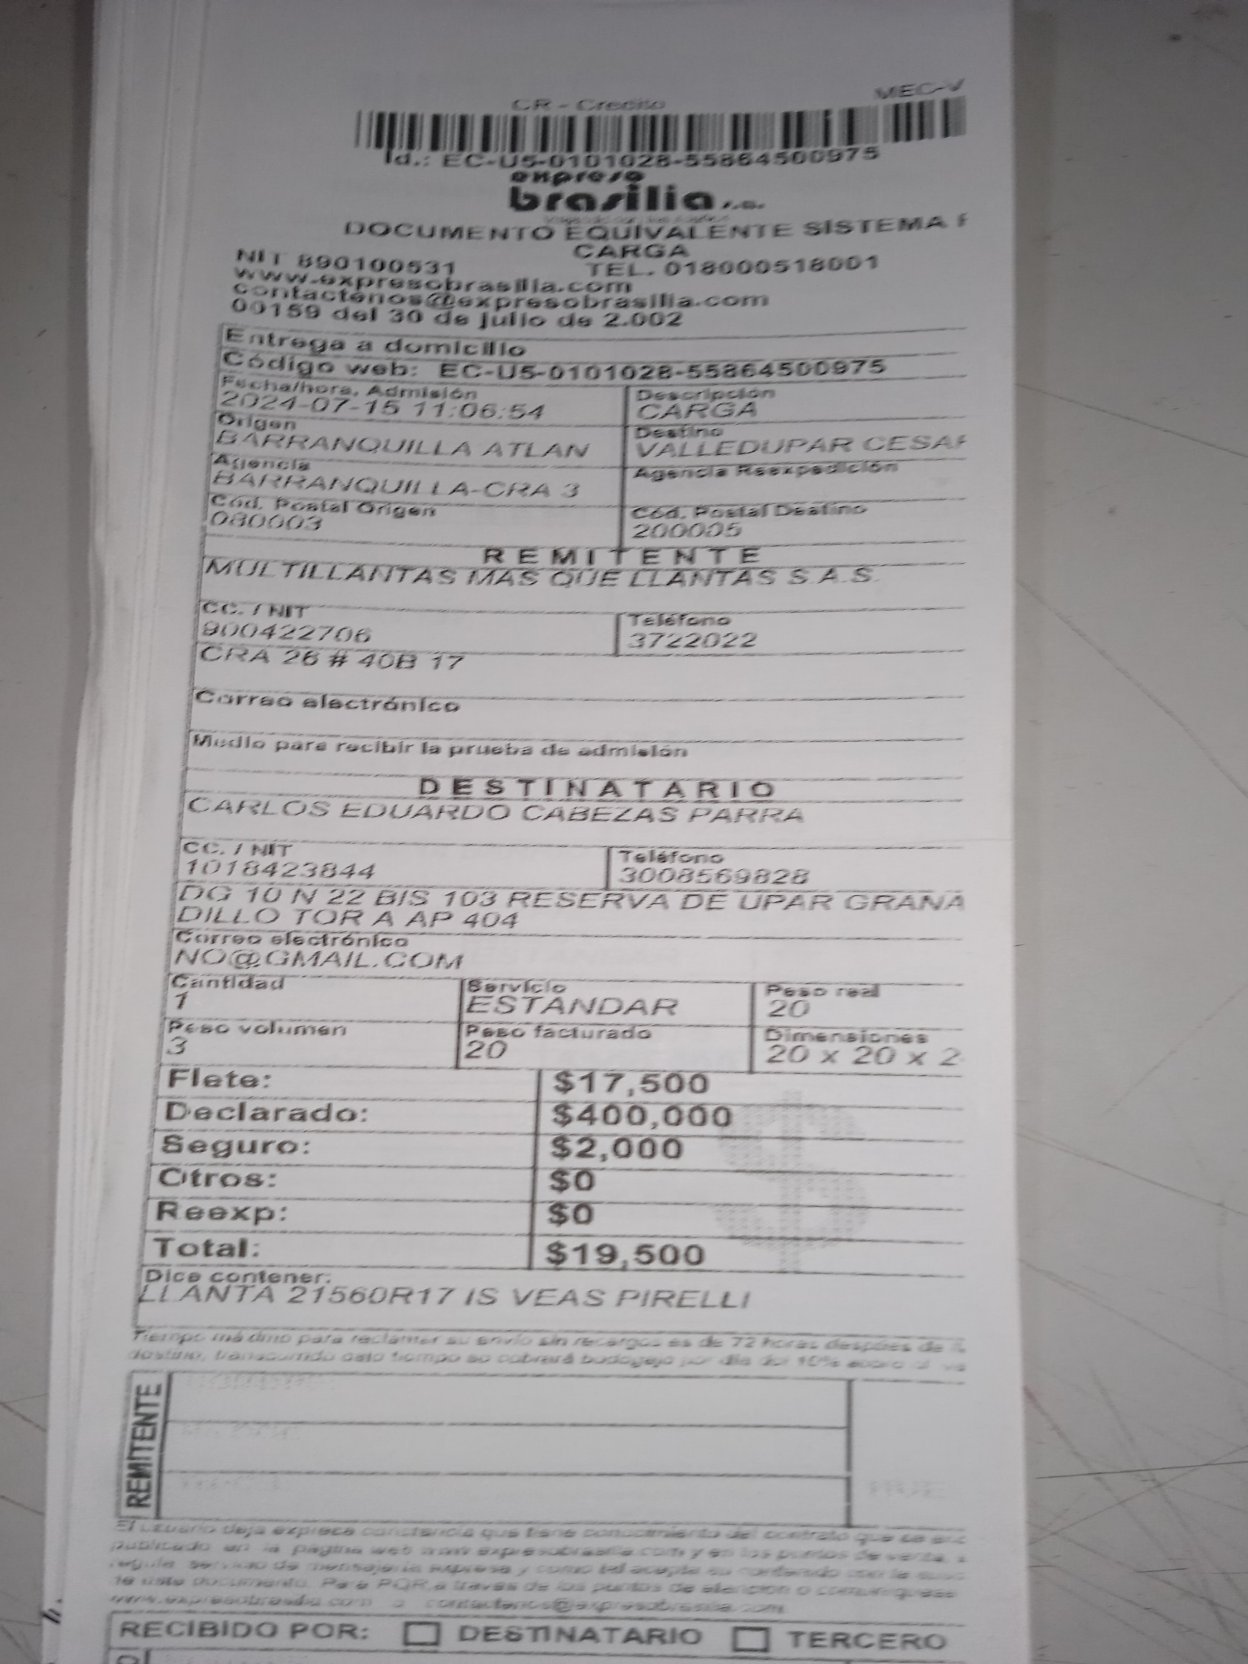 CR - Credito
MEC-V
Id.: EC-U5-0101028-55864500975
expreso
brasilia s.a.
DOCUMENTO EQUIVALENTE SISTEMA P
CARGA
NIT 890100531 TEL. 018000518001
www.expresobrasilia.com
contactenos@expresobrasilia.com
00159 del 30 de julio de 2.002
Entrega a domicilio
Código web: EC-U5-0101028-55864500975
Fecha/hora, Admisión Descripción
2024-07-15 11:06:54 CARGA
Origen Destino
BARRANQUILLA ATLAN VALLEDUPAR CESAR
Agencia Agencia Reexpedición
BARRANQUILLA-CRA 3
Cód. Postal Origen Cód. Postal Destino
080003 200005
REMITENTE
MULTILLANTAS MAS QUE LLANTAS S.A.S.
CC. / NIT Teléfono
900422706 3722022
CRA 26 # 40B 17
Correo electrónico
Medio para recibir la prueba de admisión
DESTINATARIO
CARLOS EDUARDO CABEZAS PARRA
CC. / NIT Teléfono
1018423844 3008569828
DG 10 N 22 BIS 103 RESERVA DE UPAR GRANA
DILLO TOR A AP 404
Correo electrónico
NO@GMAIL.COM
Cantidad Servicio Peso real
1 ESTANDAR 20
Peso volumen Peso facturado Dimensiones
3 20 20 x 20 x 2
Flete: $17,500
Declarado: $400,000
Seguro: $2,000
Otros: $0
Reexp: $0
Total: $19,500
Dice contener:
LLANTA 21560R17 IS VEAS PIRELLI
Tiempo máximo para reclamar su envío sin recargos es de 72 horas después de
destino, transcurrido este tiempo se cobrará bodegaje por día del 10% sobre el va
REMITENTE
El usuario deja expresa constancia que tiene conocimiento del contrato que se enc
publicado en la pagina web www.expresobrasilia.com y en los puntos de venta,
regula servicio de mensajería expresa y como tal acepta su contenido con la susc
de este documento. Para PQR a traves de los puntos de atención o comuniquese
www.expresobrasilia.com o contactenos@expresobrasilia.com
RECIBIDO POR: DESTINATARIO TERCERO